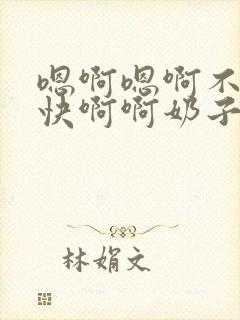 嗯啊嗯啊不
快啊啊奶子
林娟文